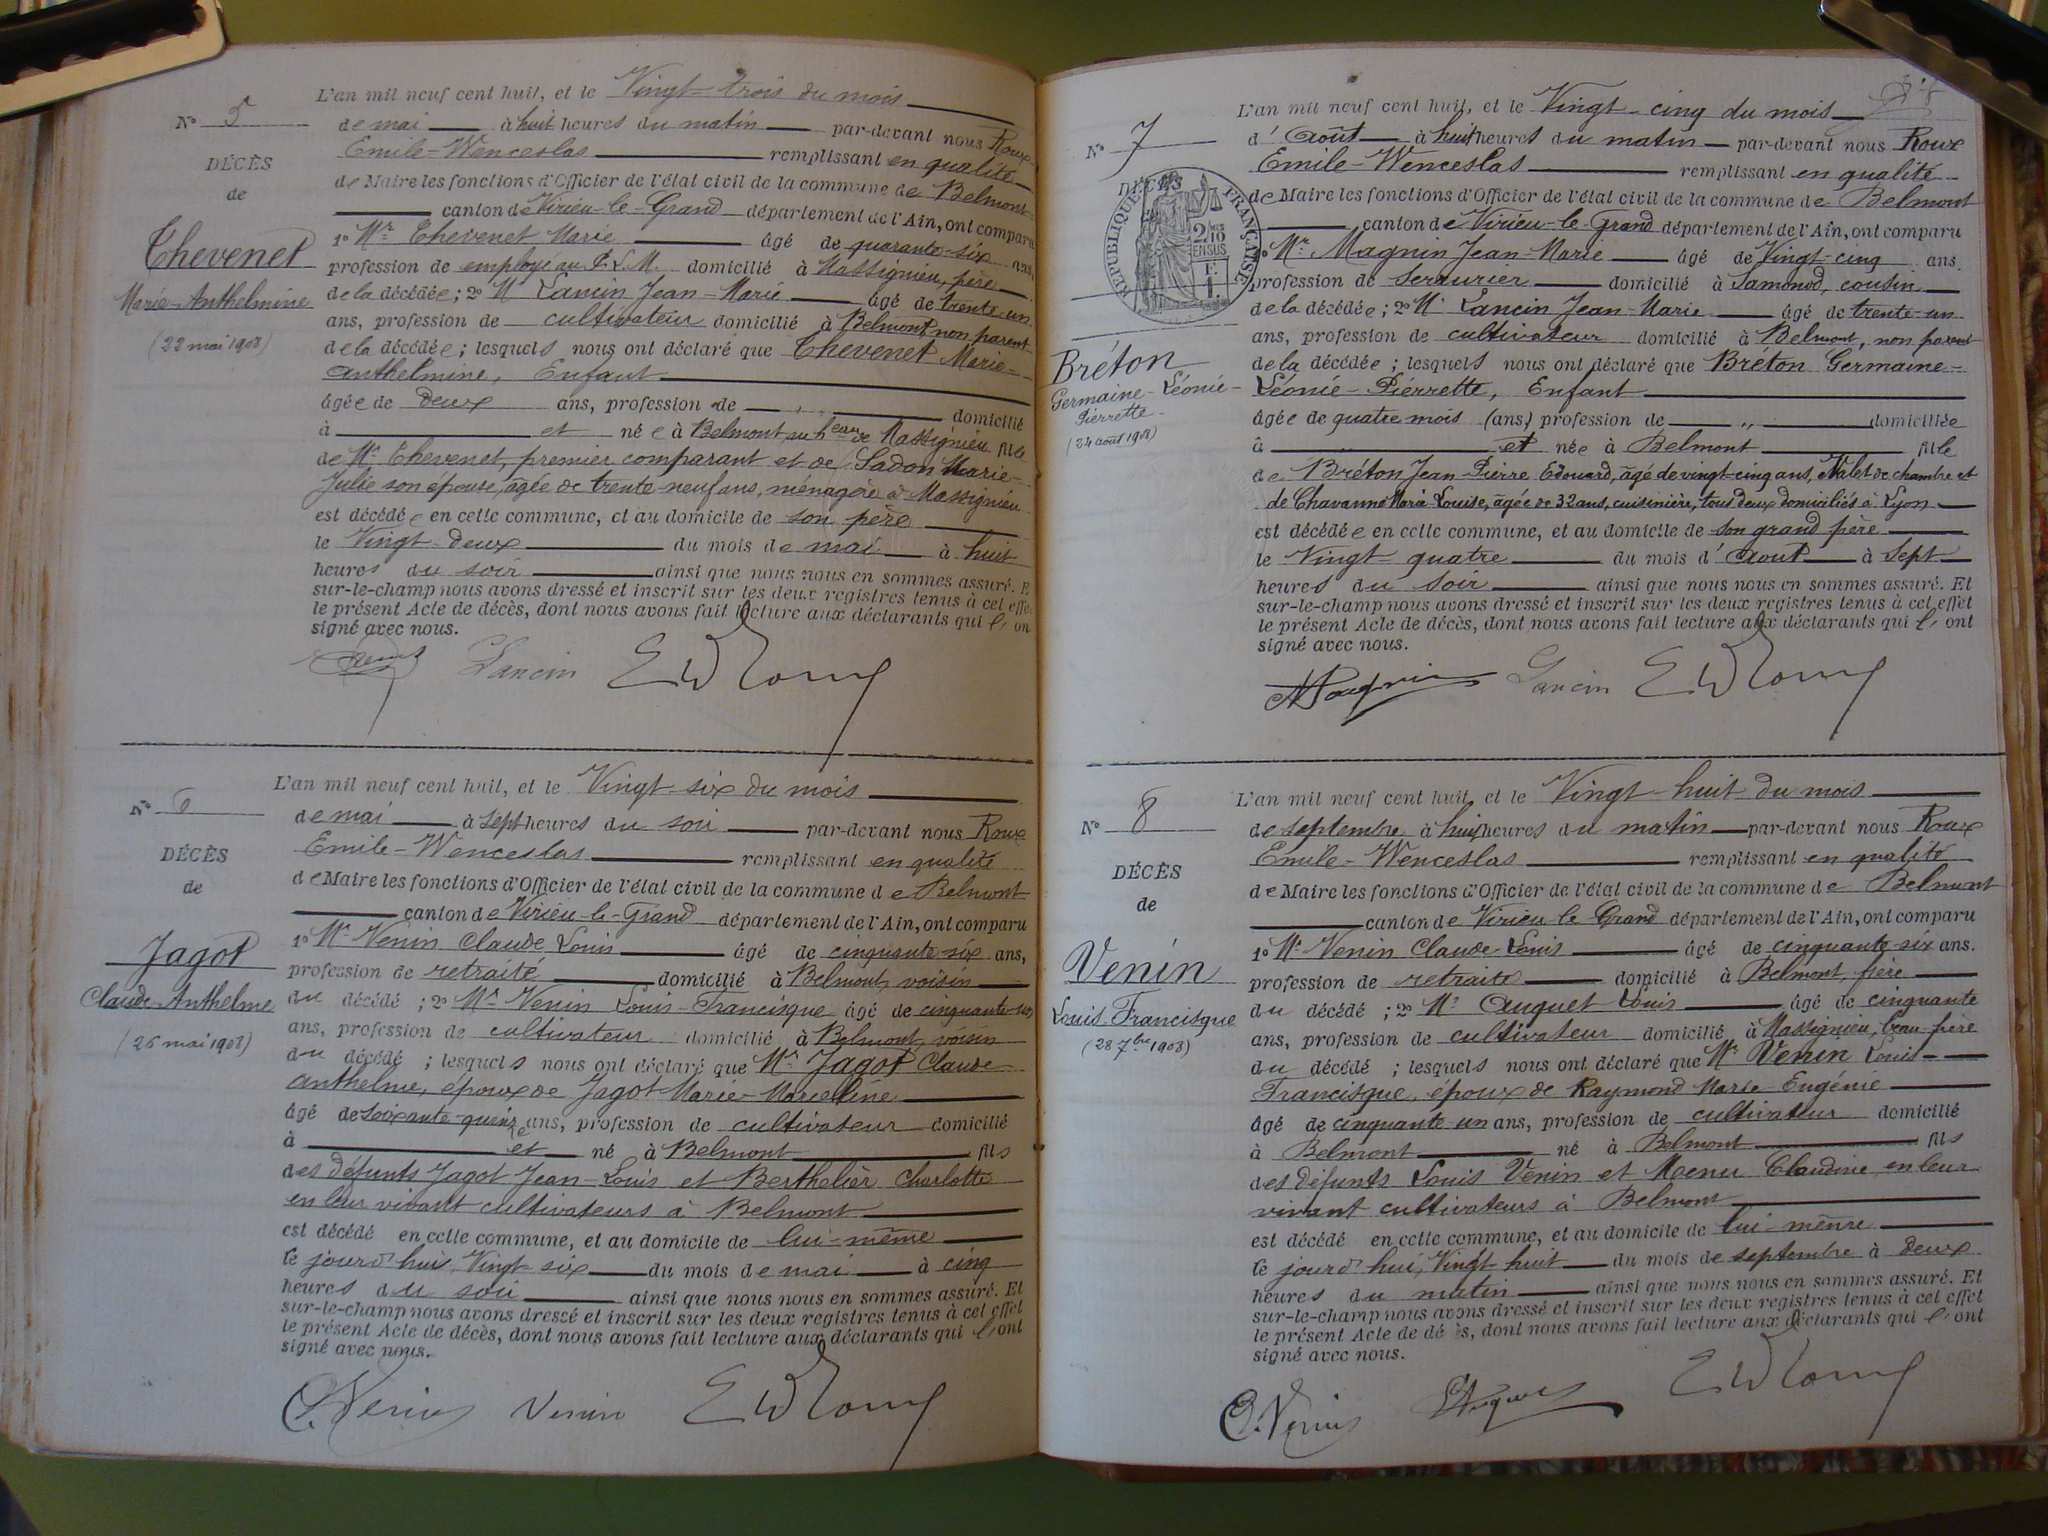 L'an mil neuf cent huit, et le Vingt-trois du mois
Nº 5
de mai à huit heures du matin par-devant nous Roux
Emile-Wenceslas remplissant en qualité
DÉCÈS
de Maire les fonctions d'Officier de l'état civil de la commune de Belmont
de
canton de Virieu-le-Grand département de l'Ain, ont comparu
Thevenet
1º Mr Thevenet Marie âgé de quarante-six ans,
profession de employé au P.L.M. domicilié à Massignieu, père
Marie-Anthelmine
de la décédée; 2º M Lancin Jean-Marie âgé de trente-un
ans, profession de cultivateur domicilié à Belmont, non parent
(22 mai 1908)
de la décédée; lesquels nous ont déclaré que Thevenet Marie-
Anthelmine, Enfant
âgée de deux ans, profession de domicilié
à et née à Belmont au heau de Massignieu fille
de Mr Thevenet, premier comparant et de Ladon Marie-
Julie son épouse, âgée de trente-neuf ans, ménagère à Massignieu
est décédée en cette commune, et au domicile de son père
le Vingt-deux du mois de mai à huit
heures du soir ainsi que nous nous en sommes assuré. E
sur-le-champ nous avons dressé et inscrit sur les deux registres tenus à cet effet
le présent Acte de décès, dont nous avons fait lecture aux déclarants qui l' on
signé avec nous.
Lancin EW Roux
L'an mil neuf cent huit, et le Vingt-six du mois
Nº 6
de mai à sept heures du soir par-devant nous Roux
Emile-Wenceslas remplissant en qualité
DÉCÈS
de Maire les fonctions d'Officier de l'état civil de la commune de Belmont
de
canton de Virieu-le-Grand département de l'Ain, ont comparu
Jagot
1º Mr Venin Claude Louis âgé de cinquante-six ans,
profession de retraité domicilié à Belmont, voisin
Claude-Anthelme
du décédé; 2º Mr Venin Louis-Francisque âgé de cinquante-un
ans, profession de cultivateur domicilié à Belmont, voisin
(26 mai 1908)
du décédé; lesquels nous ont déclaré que Mr Jagot Claude
Anthelme, époux de Jagot Marie-Marcelline
âgé de soixante-quinze ans, profession de cultivateur domicilié
à et né à Belmont fils
des défunts Jagot Jean-Louis et Berthelier Charlotte
en leur vivant cultivateurs à Belmont
est décédé en cette commune, et au domicile de lui-même
le jourd'hui Vingt-six du mois de mai à cinq
heures du soir ainsi que nous nous en sommes assuré. Et
sur-le-champ nous avons dressé et inscrit sur les deux registres tenus à cet effet
le présent Acte de décès, dont nous avons fait lecture aux déclarants qui l'ont
signé avec nous.
C. Venin Venin EW Roux
L'an mil neuf cent huit, et le Vingt-cinq du mois
Nº 7
d'Août à huit heures du matin par-devant nous Roux
Emile-Wenceslas remplissant en qualité
RÉPUBLIQUE FRANÇAISE
DÉCIMES
2/10
EN SUS
de Maire les fonctions d'Officier de l'état civil de la commune de Belmont
canton de Virieu-le-Grand département de l'Ain, ont comparu
1º Mr Magnin Jean-Marie âgé de Vingt-cinq ans
profession de serrurier domicilié à Samonod, cousin
de la décédée; 2º Mr Lancin Jean-Marie âgé de trente-un
ans, profession de cultivateur domicilié à Belmont, non parent
Bréton
de la décédée; lesquels nous ont déclaré que Bréton Germaine-
Germaine-Léonie-
Léonie-Pierrette, Enfant
Pierrette
âgée de quatre mois (ans) profession de domiciliée
(24 août 1908)
à et née à Belmont fille
de Bréton Jean-Pierre Edouard, âgé de vingt-cinq ans, Valet de chambre et
de Chavanne Marie Louise, âgée de 32 ans, cuisinière, tous deux domiciliés à Lyon
est décédée en cette commune, et au domicile de son grand père
le Vingt-quatre du mois d'Août à sept
heures du soir ainsi que nous nous en sommes assuré. Et
sur-le-champ nous avons dressé et inscrit sur les deux registres tenus à cet effet
le présent Acte de décès, dont nous avons fait lecture aux déclarants qui l'ont
signé avec nous.
Magnin Lancin EW Roux
L'an mil neuf cent huit, et le Vingt-huit du mois
Nº 8
de septembre à huit heures du matin par-devant nous Roux
Emile-Wenceslas remplissant en qualité
DÉCÈS
de Maire les fonctions d'Officier de l'état civil de la commune de Belmont
de
canton de Virieu-le-Grand département de l'Ain, ont comparu
Venin
1º Mr Venin Claude-Louis âgé de cinquante-six ans.
profession de retraité domicilié à Belmont, frère
Louis-Francisque
du décédé; 2º Mr Auguet Louis âgé de cinquante
(28 7bre 1908)
ans, profession de cultivateur domicilié à Massignieu, beau frère
du décédé; lesquels nous ont déclaré que Mr Venin Louis-
Francisque, époux de Raymond Marie-Eugénie
âgé de cinquante un ans, profession de cultivateur domicilié
à Belmont né à Belmont fils
des défunts Louis Venin et Claudine en leur
vivant cultivateurs à Belmont
est décédé en cette commune, et au domicile de lui-même
le jourd'hui, Vingt-huit du mois de septembre à deux
heures du matin ainsi que nous nous en sommes assuré. Et
sur-le-champ nous avons dressé et inscrit sur les deux registres tenus à cet effet
le présent Acte de dé ès, dont nous avons fait lecture aux déclarants qui l'ont
signé avec nous.
C. Venin EW Roux